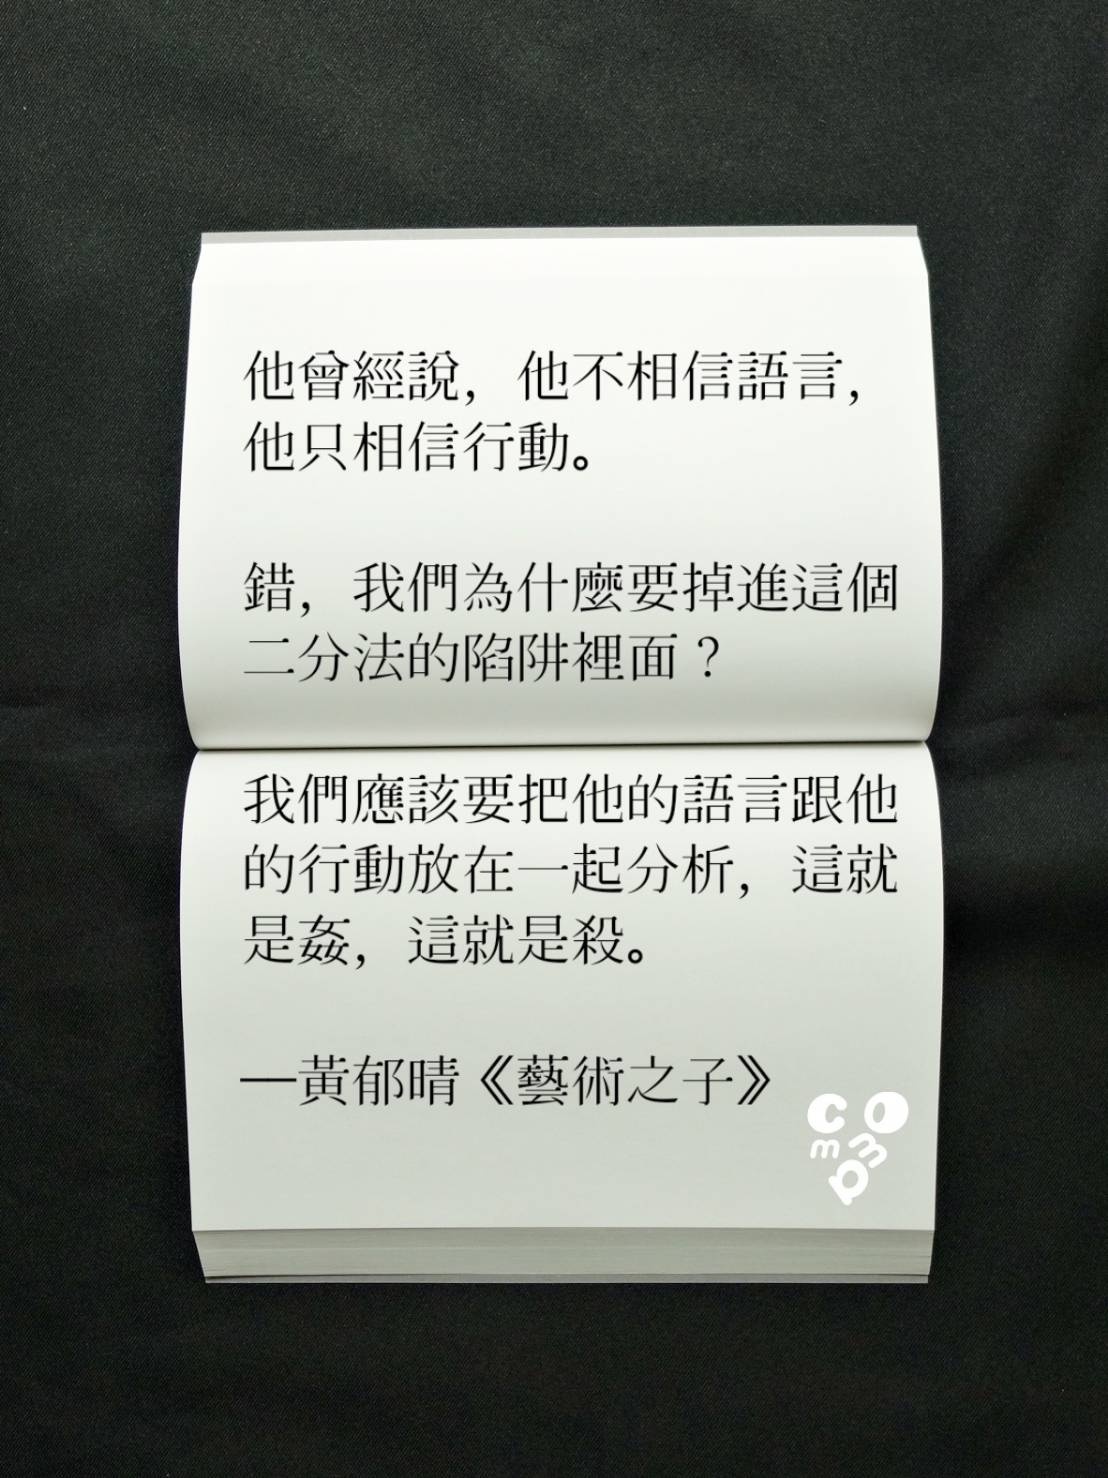 他曾經說，他不相信語言，
他只相信行動。
錯，我們為什麼要掉進這個
二分法的陷阱裡面？
我們應該要把他的語言跟他
的行動放在一起分析，這就
是姦，這就是殺。
—黃郁晴《藝術之子》
co
mm
pa